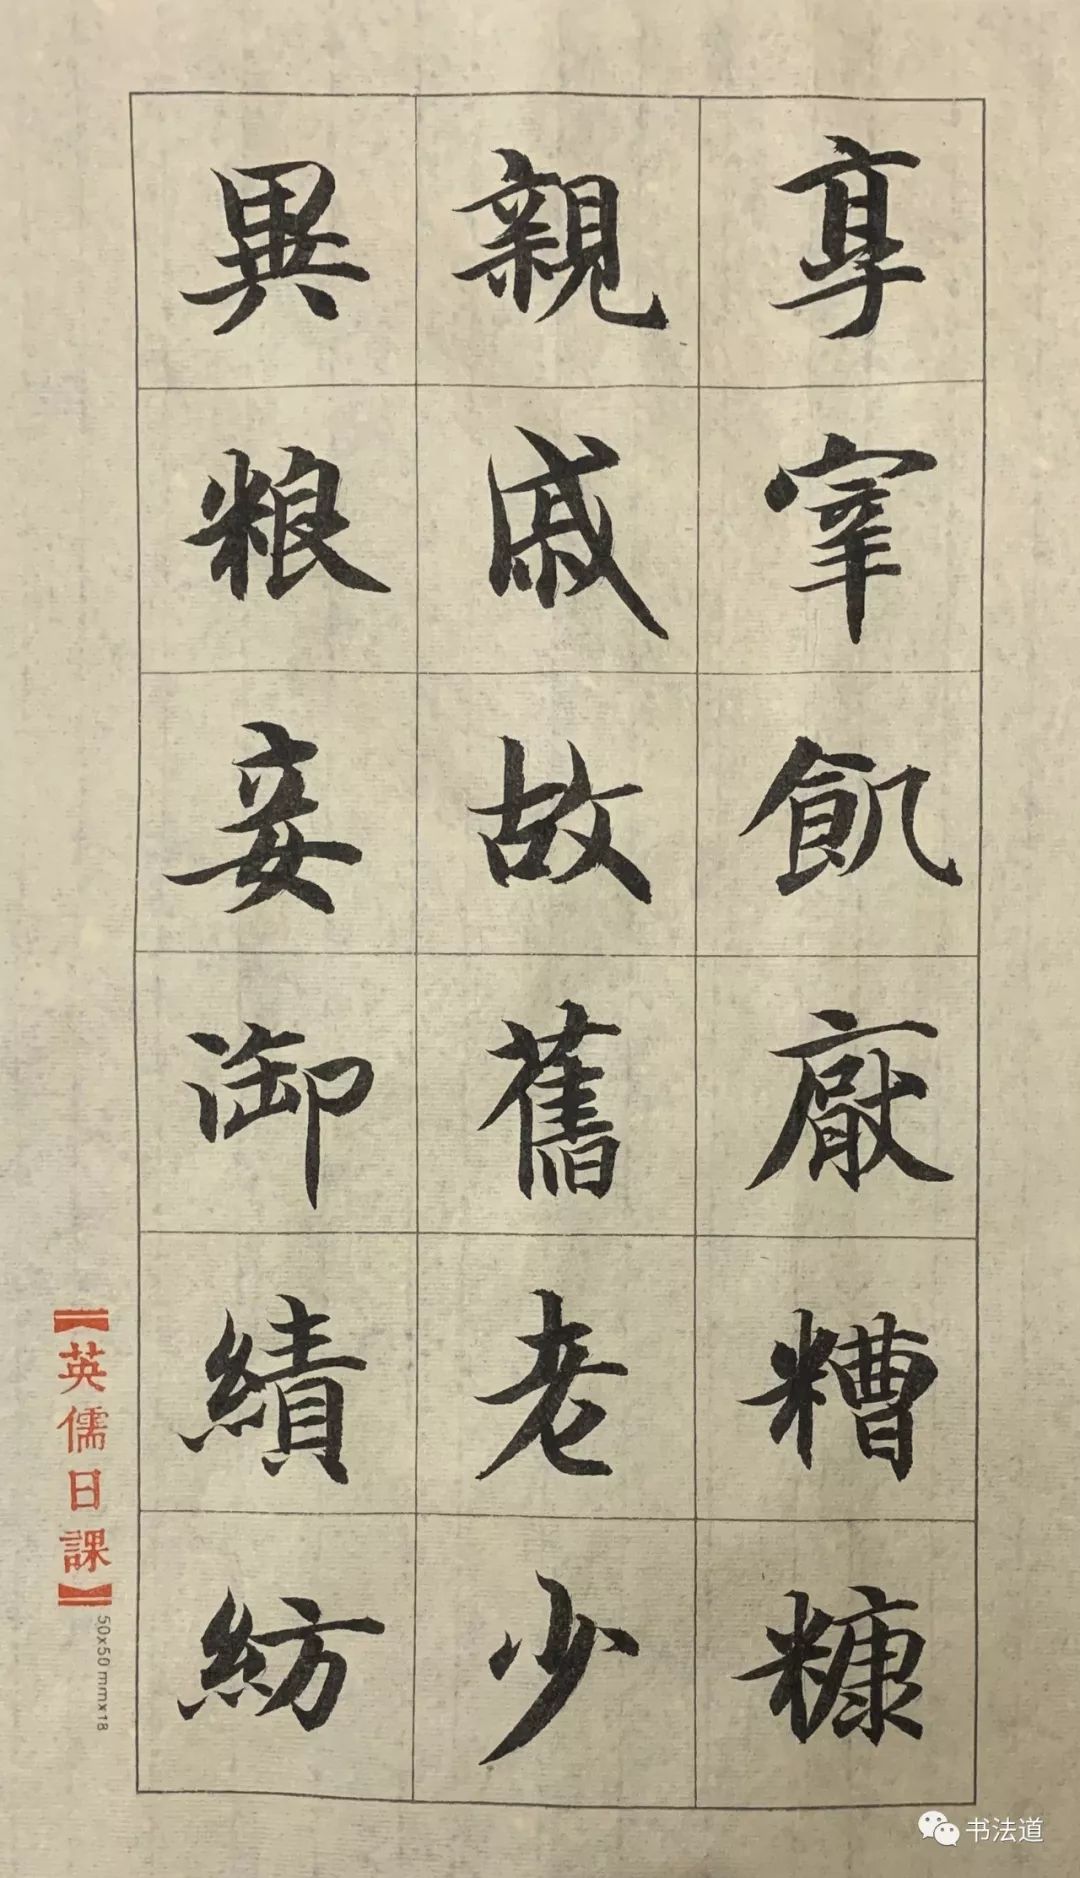 享宰飢厭糟糠
親戚故舊老少
異粮妾御績紡
【英儒日課】
50x50mmx18
书法道